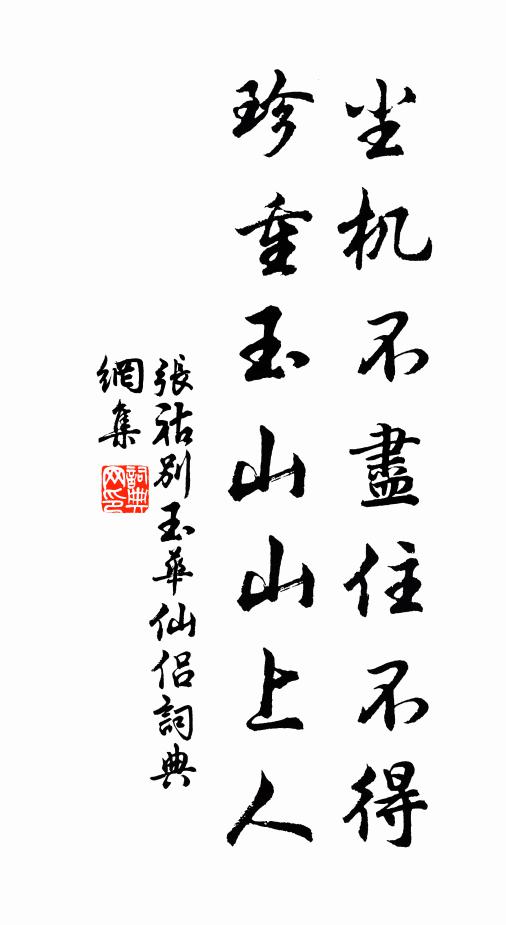 尘机不盡住不得
珍重玉山山上人
張祜別玉華仙侶詞典
網集
詞典
网印